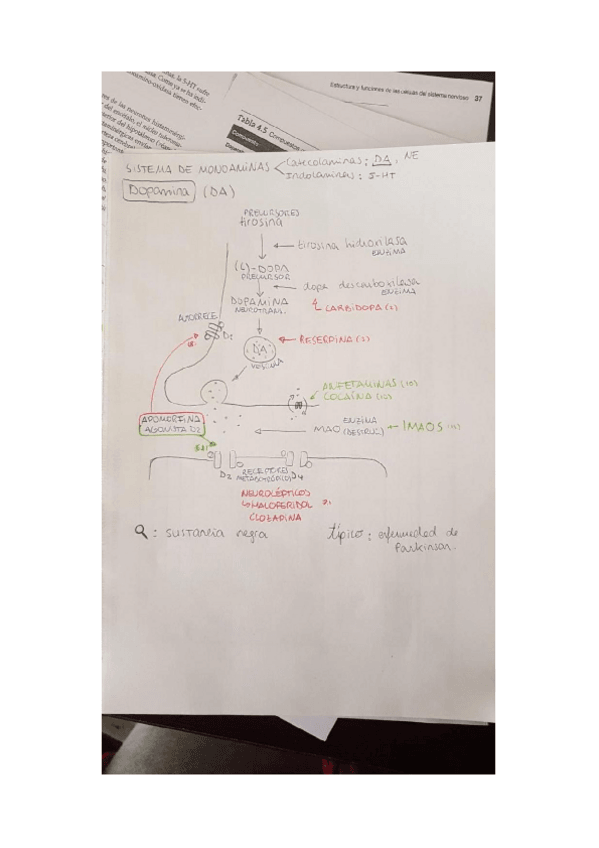 la 5-HT sufre
Como ya se ha indi-
Estructura y funciones de las células del sistema nervioso 37
Tabla 4.5 Compuestos
SISTEMA DE MONOAMINAS
Catecolaminas: DA, NE
Indolaminas: 5-HT
Dopamina (DA)
PRECURSORES
tirosina
tirosina hidroxilasa
ENZIMA
(L)-DOPA
PRECURSOR
dopa descarboxilasa
ENZIMA
DOPAMINA
NEUROTRAM.
CARBIDOPA
AUTORECE
D2
RESERPINA
DA
VESICULA
ANFETAMINAS
COCAÍNA
APOMORFINA
AGONISTA D2
ENZIMA
MAO (DESTRUC)
IMAOS
D2
RECEPTORES
METABOTRÓPICOS
D4
NEUROLÉPTICOS
HALOPERIDOL
CLOZAPINA
: sustancia negra
típico: enfermedad de
Parkinson.